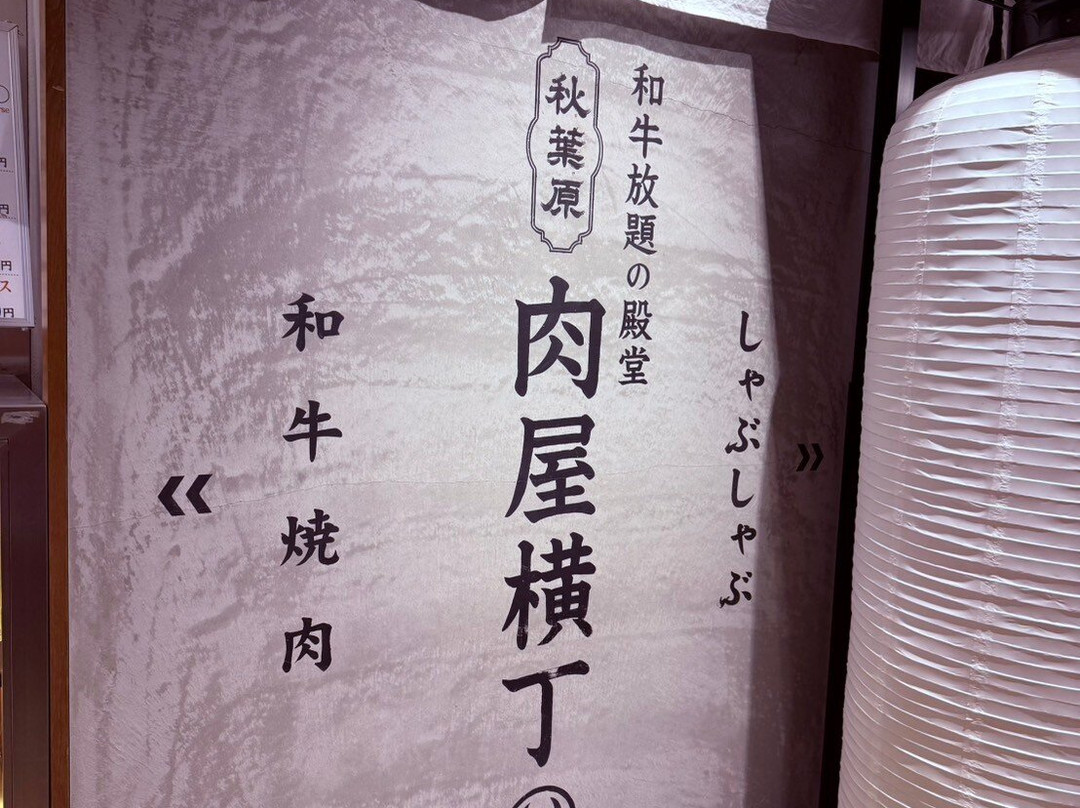 しゃぶしゃぶ
»
和牛放題の殿堂
秋葉原
肉屋横丁
和牛焼肉
«
円
円
円
ス
円